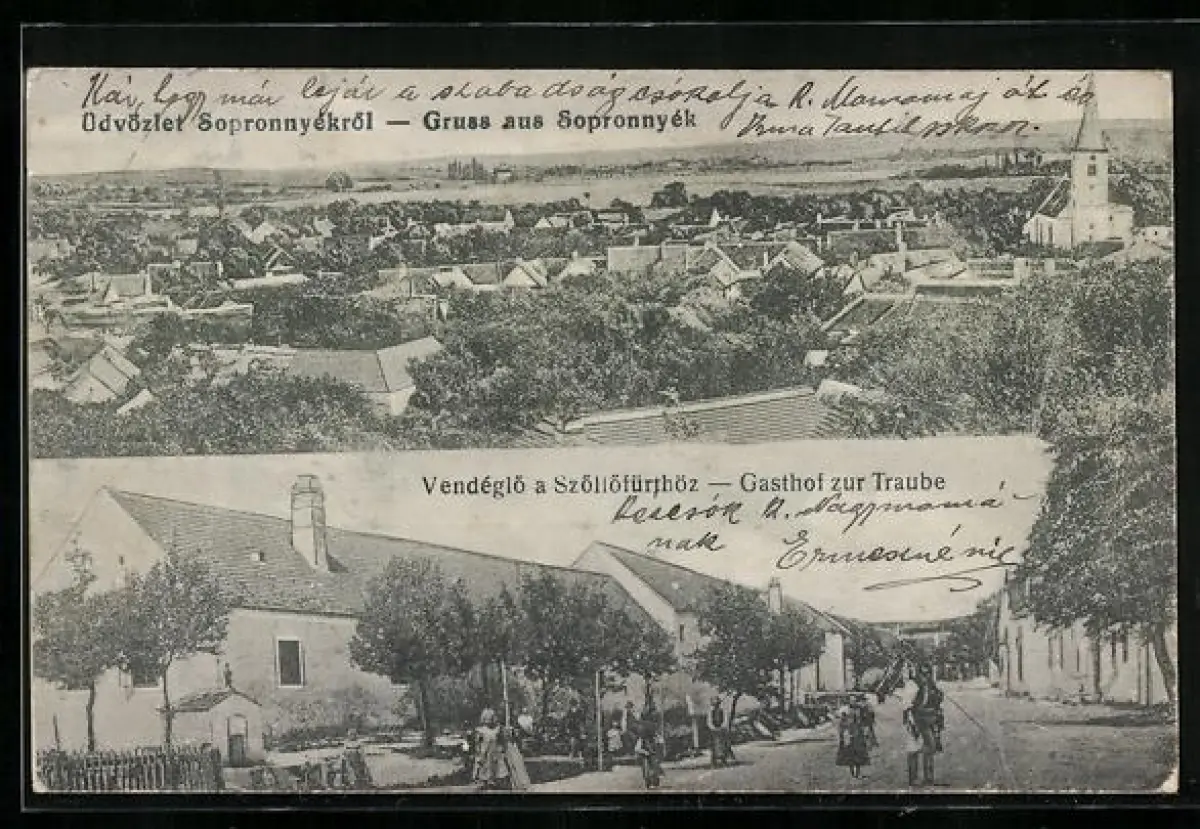 Kár, hogy már lejár a szabadság csókolja R. Mamamaj át és
Üdvözlet Sopronnyékről — Gruss aus Sopronnyék
Vendéglő a Szőllőfürthöz — Gasthof zur Traube
R. Nagymamá
nak